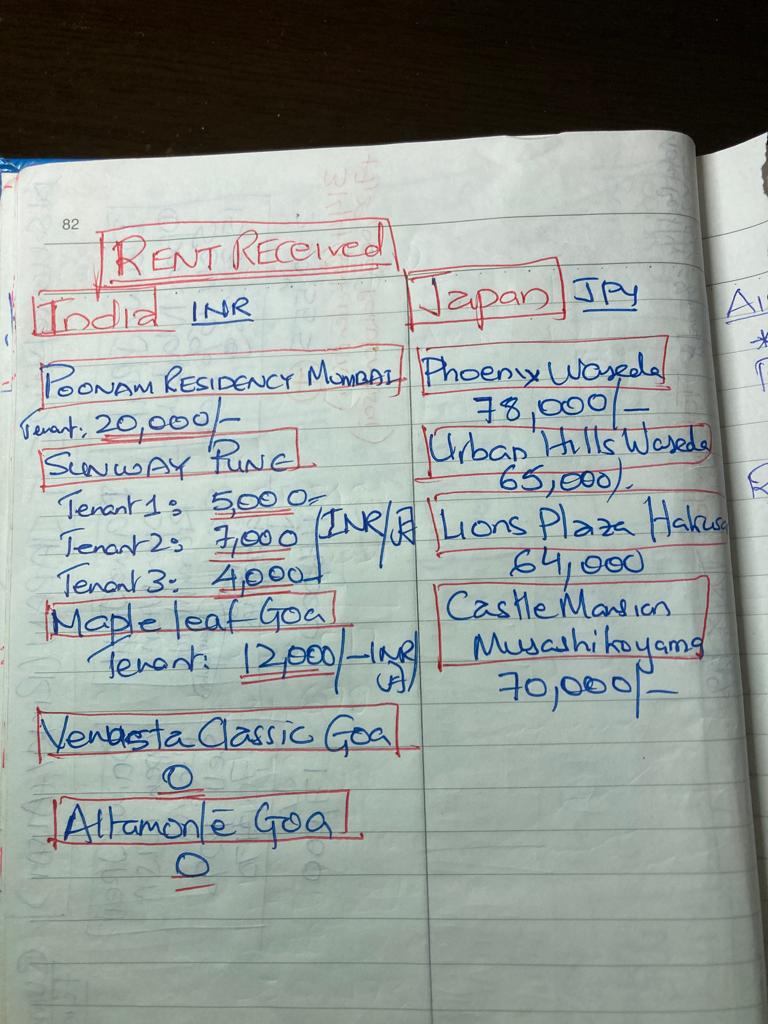 82
RENT RECEIVED
India INR
POONAM RESIDENCY MUMBAI
Tenant: 20,000/-
SUNWAY PUNE
Tenant 1: 5,000
Tenant 2: 7,000 INR/月
Tenant 3: 4,000
Maple leaf Goa
Tenant: 12,000/- INR/月
Classic Goa
0
Altamonte Goa
0
Japan JPY
Phoenix Waseda
78,000/-
Urban Hills Waseda
65,000/.
Lions Plaza
64,000
Castle Mansion
Musashikoyama
70,000/-